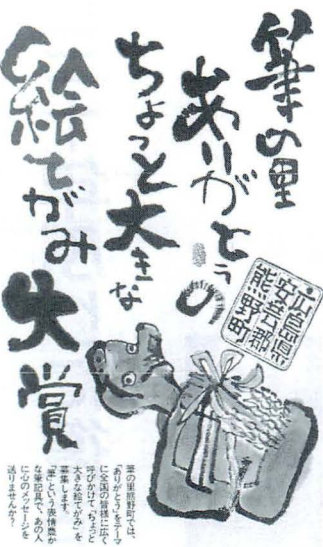 筆の里
ありがとうの
ちょっと大きな
絵てがみ大賞
広島県
安芸郡
熊野町
筆の里熊野町では、
「ありがとう」をテーマ
に全国の皆様に広く
呼びかけて、“ちょっと
大きな絵てがみ”を
募集します。
「筆」という表情豊か
な筆記具で、あの人
に心のメッセージを
送りませんか?